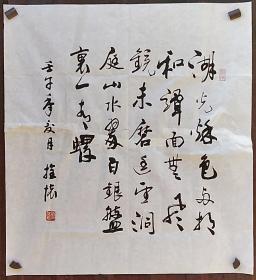 湖光秋色兩相
和潭面無風
鏡未磨遥望洞
庭山水翠白銀盤
裏一青螺
壬午年夏月